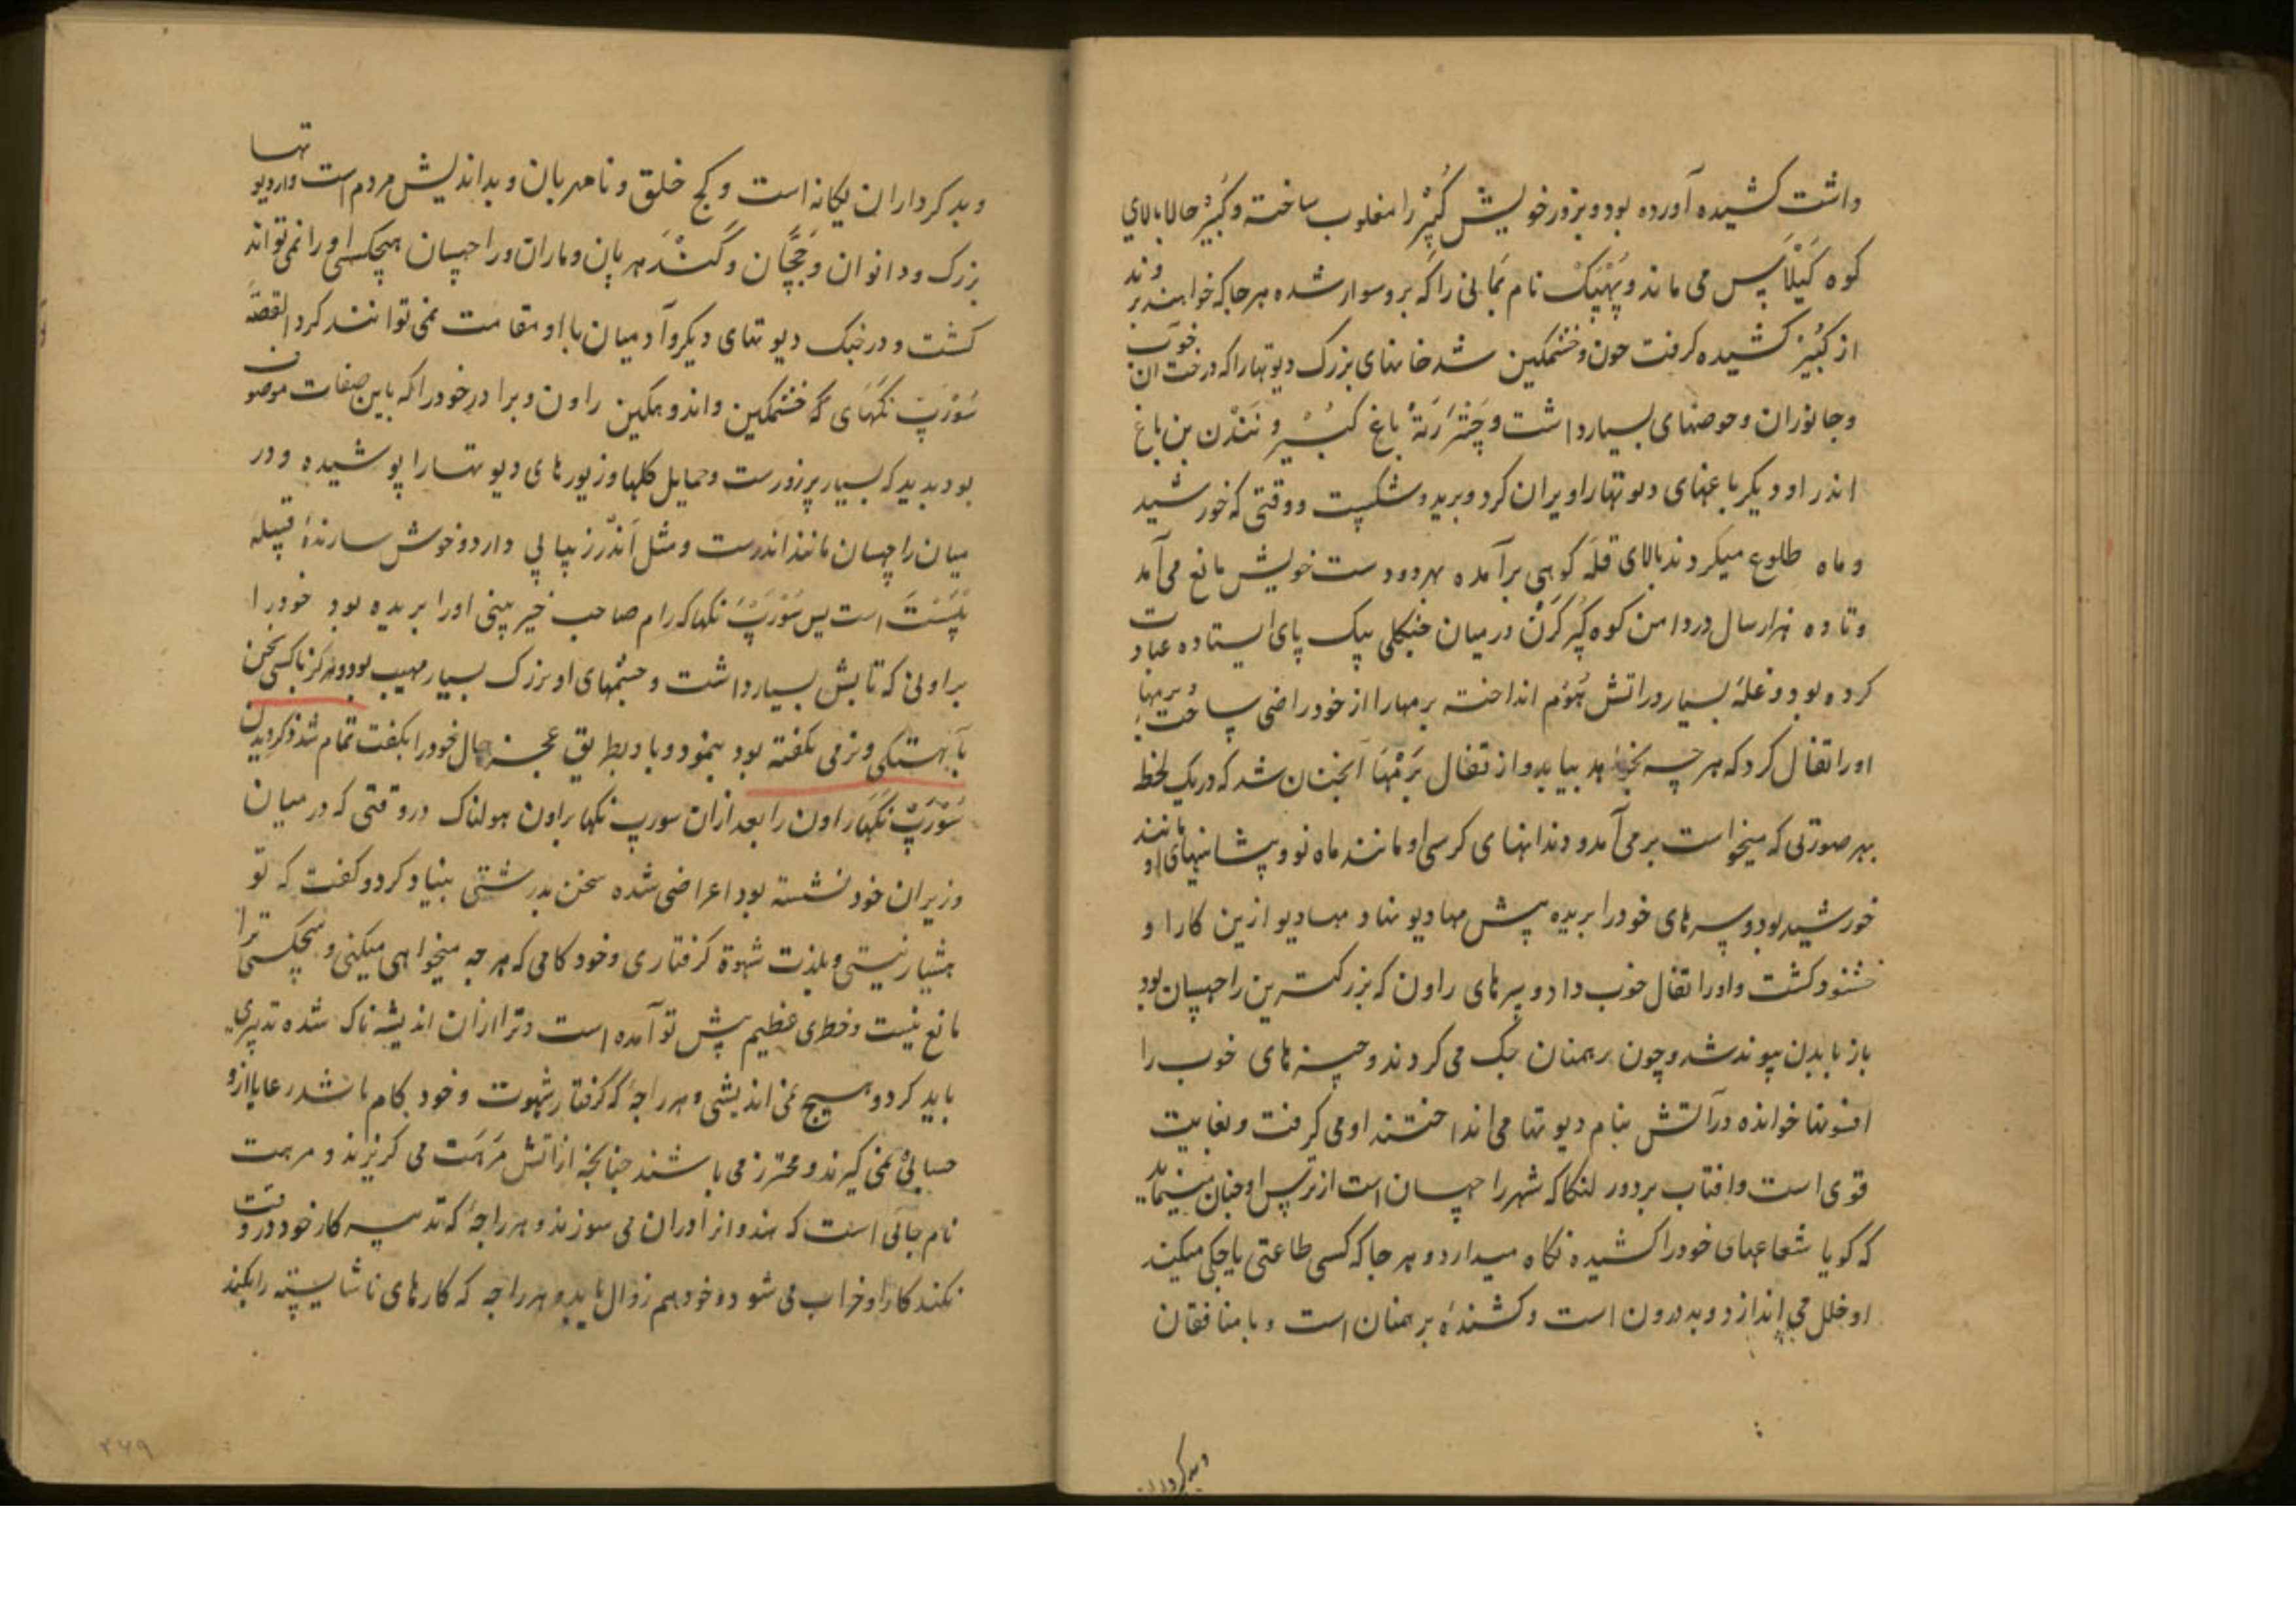 داشت کشیده آورده بود و بزور خویش کُبیْر را مغلوب ساخته و کُبیْر حالا بالای
کوه کَیْلَاس می ماند و پُهپَکْ نام بَمَانی را که بر و سوار شده هر جا که خواهند برود
از کُبیْر کشیده گرفت چون خشمگین شد خانهای بزرگ دیوتها را که درخت ان خوب
و جانوران و حوضهای بسیار داشت و چَتْرَرَتهْ باغ کُبیْر و نَنْدَن بن باغ
اندر او دیگر باغهای دیوتها را ویران کرد و برید و شکست و وقتی که خورشید
و ماه طلوع میکردند بالای قله کوهی برآمده بهر دو دست خویش مانع می آمد
و تا ده هزار سال در دامن کوه گُرکَرَن در میان جنگلی بیک پای ایستاده عبادت
کرده بود و غله بسیار در اتش هُوْم انداخته برمها را از خود راضی ساخت و برمها
او را تفال کرد که هر چه بخواهد بیابد و از تفال بَرَمْهَا انچنان شد که در یک لحظ
بهر صورتی که میخواست بر می آمد و دندانهای کرسی او مانند ماه نو و پیشانیهای او مانند
خورشید بود و سرهای خود را بریده پیش مهادیو نهاد مهادیو ازین کار او
خشنود گشت و او را تفال خوب داد و سرهای راون که بزرگترین راچهسان بود
باز با بدن پیوند شد و چون برهمنان جگ می کردند و چیزهای خوب را
افسونها خوانده در آتش بنام دیوتها می انداختند او می گرفت و بغایت
قوی است و افتاب بر دور لنکا که شهر راچهسان است از ترس او چنان مینماید
که گویا شعاعهای خود را کشیده نگاه میدارد و هر جا که کسی طاعتی یا جگی میکند
او خلل می اندازد و بد درون است و کشندهٔ برهمنان است و با منافقان
و بدکرداران
و بدکرداران یگانه است و کج خلق و نامهربان و بداندیش مردم است و از دیوتها
بزرگ و دانوان و جَچَّان و گَنْدَهربان و ماران و راچهسان هیچکسی او را نمی تواند
کشت و در جنگ دیوتهای دیگر و آدمیان با او مقامت نمی توانند کرد القصه
سُوْرَپَ نَکَهَای که خشمگین و اندوهگین راون و برادر خود را که باین صفات موصوف
بود بدید که بسیار پرزورست و حمایل گلها و زیورهای دیوتها را پوشیده و در
میان راچهسان مانند اندرست و مثل اَندَّر زیبایی دارد و خوش سازندهٔ قبیله
پُلَسْتَ است پس سُوْرَپْ نکها که رام صاحب خیر بینی او را بریده بود خود را
براونی که تابش بسیار داشت و چشمهای او بزرگ بسیار مهیب بود و هرگز با کسی سخن
بآهستگی و نرمی نگفته بود بنمود و با و بطریق عجز حال خود را بگفت تمام شد ذکر دیدن
سُوْرَپْ نَکَهَا راون را بعد ازان سورپ نکها براون هولناک در وقتی که در میان
وزیران خود نشسته بود اعراضی شده سخن بدرشتی بنیاد کرد و گفت که تو
هشیار نیستی و بلذت شهوة گرفتاری و خود کامی که هر چه میخواهی میکنی و هیچکسی ترا
مانع نیست و خطری عظیم پیش تو آمده است و ترا ازان اندیشه ناک شده تدبیری
باید کرد و هیچ نمی اندیشی و هر راجهٔ که گرفتار شهوت و خود کام باشد رعایا ازو
حسابی نمی گیرند و محترز می باشند چنانچه از اتش مَرَهَت می گریزند و مرهت
نام جائی است که هندوانرا دران می سوزند و هر راجهٔ که تدبیر کار خود در وقت
نکند کار او خراب می شود و خود هم زوال یابد و هر راجه که کارهای ناشایسته را بکند
۲۴۹